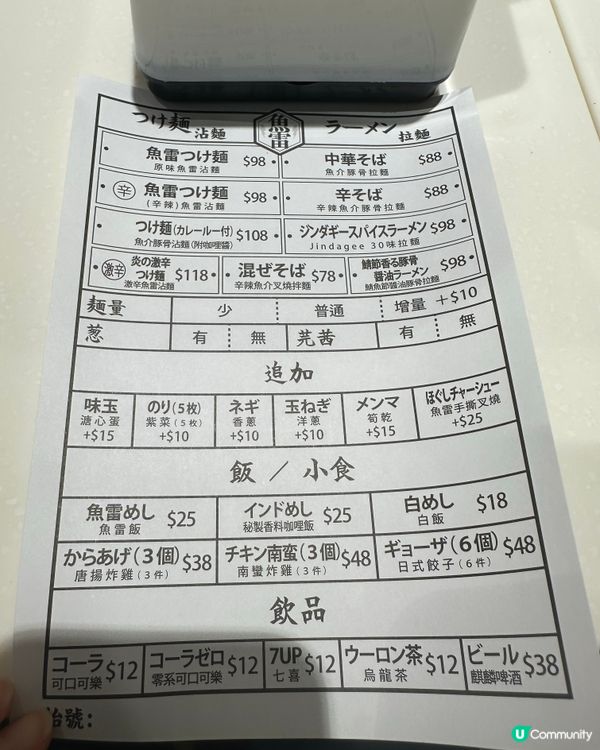 つけ麺 沾麵 魚雷 ラーメン 拉麵
魚雷つけ麺 $98
原味魚雷沾麵
中華そば $88
魚介豚骨拉麵
辛 魚雷つけ麺 $98
(辛辣)魚雷沾麵
辛そば $88
辛辣魚介豚骨拉麵
つけ麺(カレールー付) $108
魚介豚骨沾麵(附咖哩醬)
ジンダギースパイスラーメン $98
Jindagee 30味拉麵
激辛 炎の激辛
つけ麺 $118
激辛魚雷沾麵
混ぜそば $78
辛辣魚介叉燒拌麵
鯖節香る豚骨
醤油ラーメン $98
鯖魚節醬油豚骨拉麵
麵量 少 普通 增量 +$10
葱 有 無 芫茜 有 無
追加
味玉
溏心蛋
+$15
のり(5枚)
紫菜(5枚)
+$10
ネギ
香蔥
+$10
玉ねぎ
洋蔥
+$10
メンマ
筍乾
+$15
ほぐしチャーシュー
魚雷手撕叉燒
+$25
飯 / 小食
魚雷めし $25
魚雷飯
インドめし $25
秘製香料咖哩飯
白めし $18
白飯
からあげ(3個) $38
唐揚炸雞(3件)
チキン南蛮(3個) $48
南蠻炸雞(3件)
ギョーザ(6個) $48
日式餃子(6件)
飲品
コーラ $12
可口可樂
コーラゼロ $12
零系可口可樂
7UP $12
七喜
ウーロン茶 $12
烏龍茶
ビール $38
麒麟啤酒
枱號:
U Community